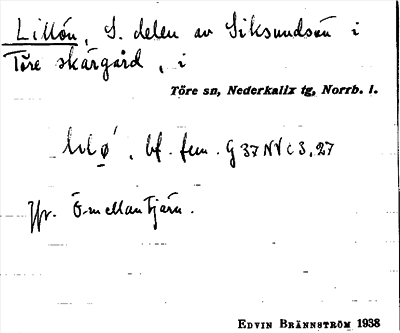 Lillön, S. delen av Siksundsön i
Töre skärgård, i
Töre sn, Nederkalix tg, Norrb. l.
bf. fem. G 37 NV c 3, 27
Jfr. Ö mellan Tjärn.
EDVIN BRÄNNSTRÖM 1938